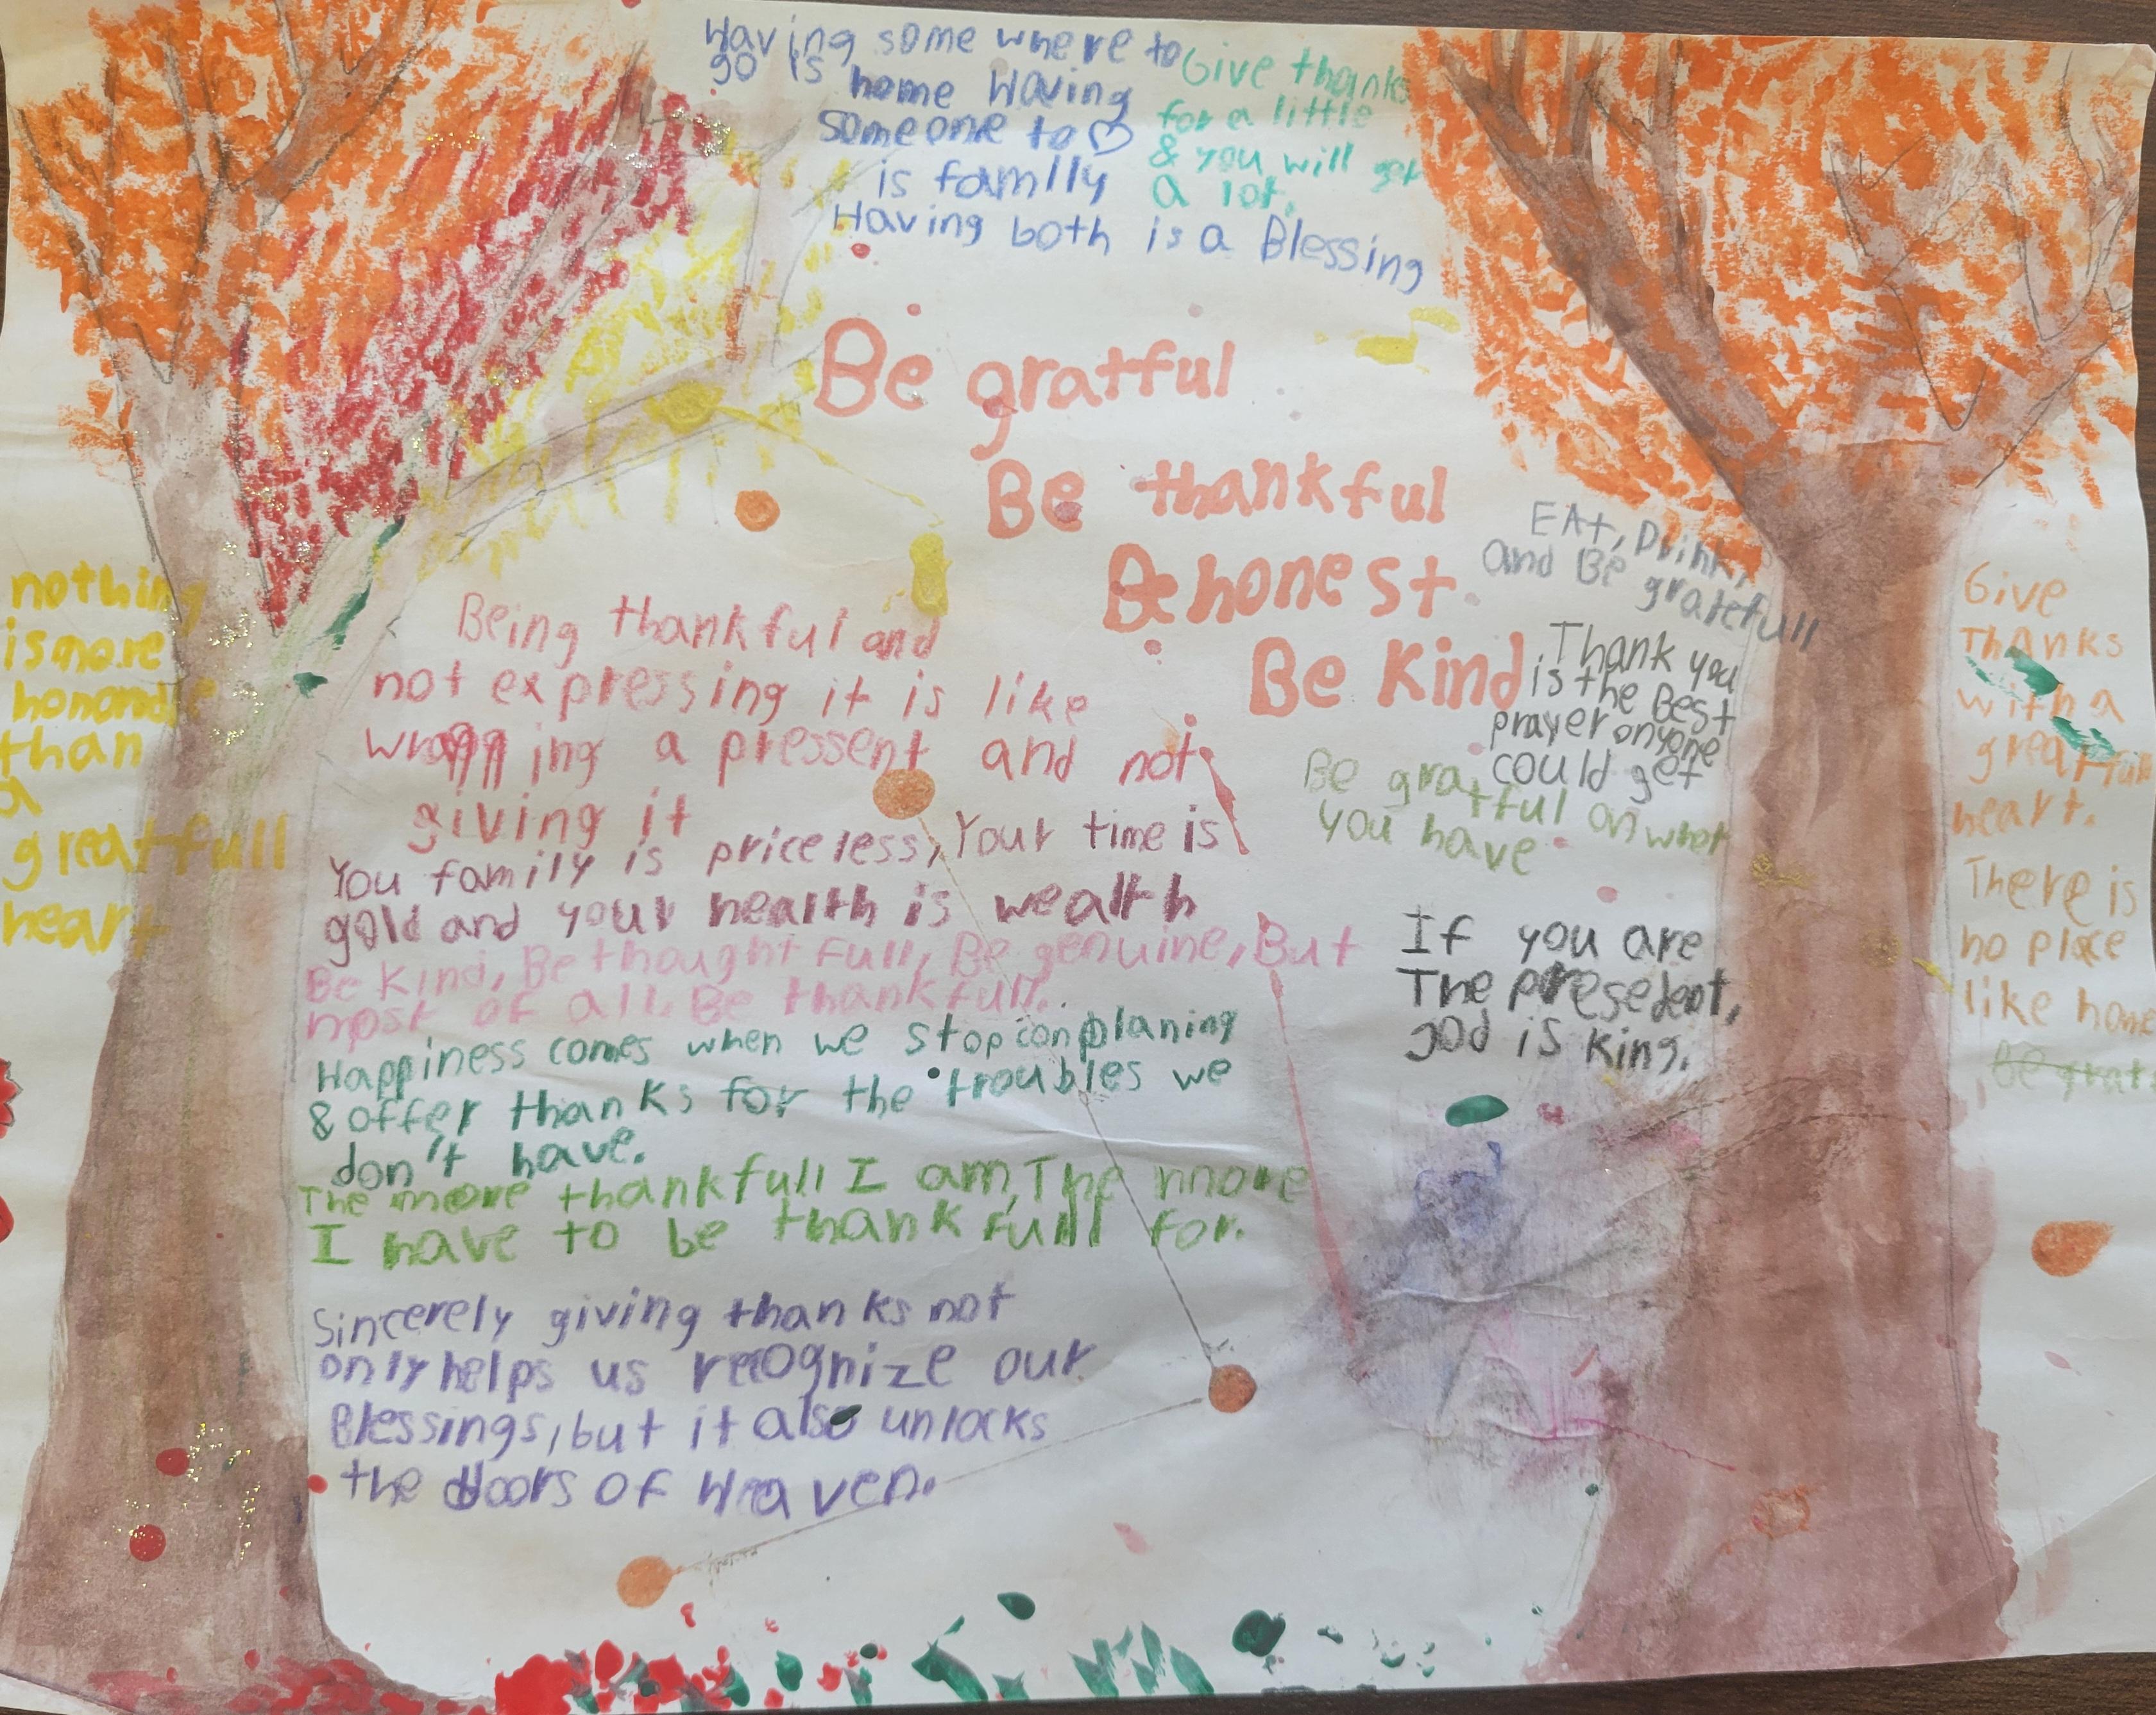 Having some where to
go is home Having
someone to
is famlly
Having both is a Blessing
Give thanks
for a little
& you will get
a lot.
Be gratful
Be thankful
Be honest
Be Kind
EAt, Drink,
and Be gratefull
Thank you
is the Best
prayer anyone
could get
Be gratful on what
you have
If you are
The presedent,
god is king.
nothing
is more
than
a
greatfull
heart
Being thankful and
not expressing it is like
wrapping a pressent and not
giving it
You family is priceless, Your time is
gold and your health is wealth
Be Kind, Be thought full, Be genuine, But
most of all. Be thankfull.
Happiness comes when we stop conplaning
& offer thanks for the troubles we
don't have.
The more thankfull I am, The more
I have to be thank full for.
Sincerely giving thanks not
only helps us recognize our
Blessings, but it also unlocks
the doors of Heaven.
Give
THANKS
with a
greatful
heart.
There is
no place
like home
Be grat